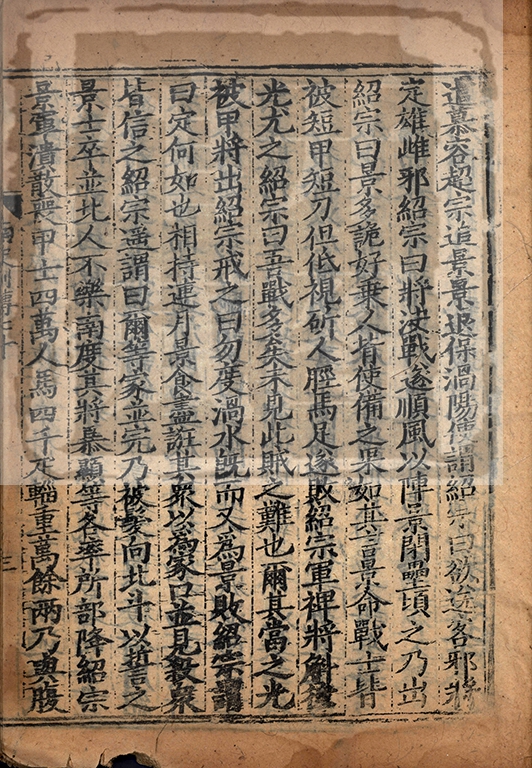 遣慕容超宗追景景退保渦陽使謂紹宗曰欲送客邪將
定雄雌邪紹宗曰將決戰遂順風以陣景閉壘頃之乃出
紹宗曰景多詭好乘人背使備之果如其言景命戰士皆
被短甲短刀但低視斫人脛馬足遂敗紹宗軍裨將斛律
光尤之紹宗曰吾戰多矣未見此賊之難也爾其當之光
被甲將出紹宗戒之曰勿度渦水既而又為景敗紹宗謂
曰定何如也相持連月景食盡誑其眾以為家口並見殺眾
皆信之紹宗遥謂曰爾等家並完乃被髮向北斗以誓之
景士卒並北人不樂南度其將暴顯等各率所部降紹宗
景軍潰散喪甲士四萬人馬四千疋輜重萬餘兩乃與腹
三